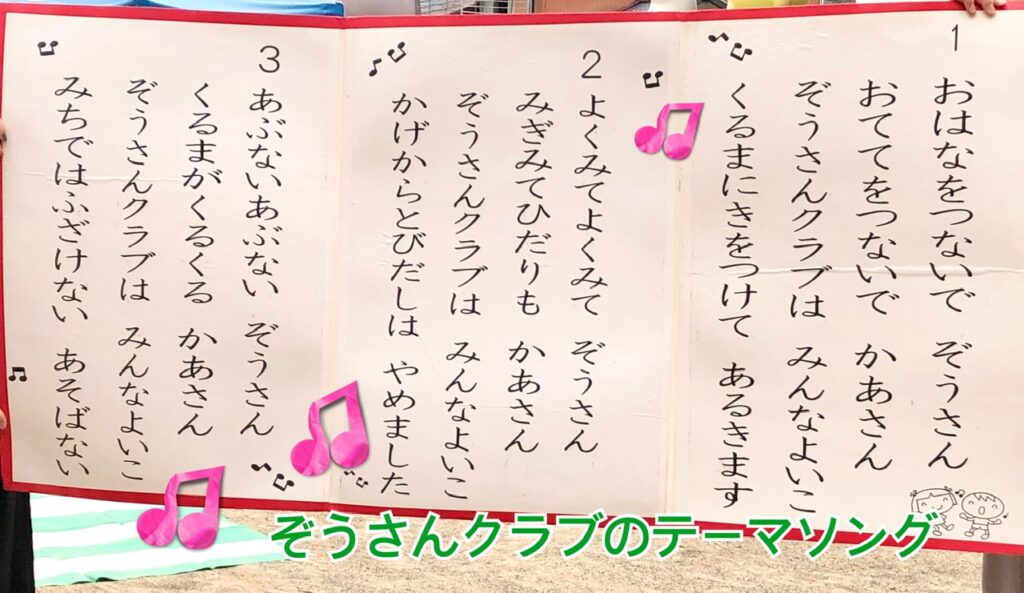 1
おはなをつないで ぞうさん
おててをつないで かあさん
ぞうさんクラブは みんなよいこ
くるまにきをつけて あるきます
2
よくみてよくみて ぞうさん
みぎみてひだりも かあさん
ぞうさんクラブは みんなよいこ
かげからとびだしは やめました
3
あぶないあぶない ぞうさん
くるまがくるくる かあさん
ぞうさんクラブは みんなよいこ
みちではふざけない あそばない
ぞうさんクラブのテーマソング